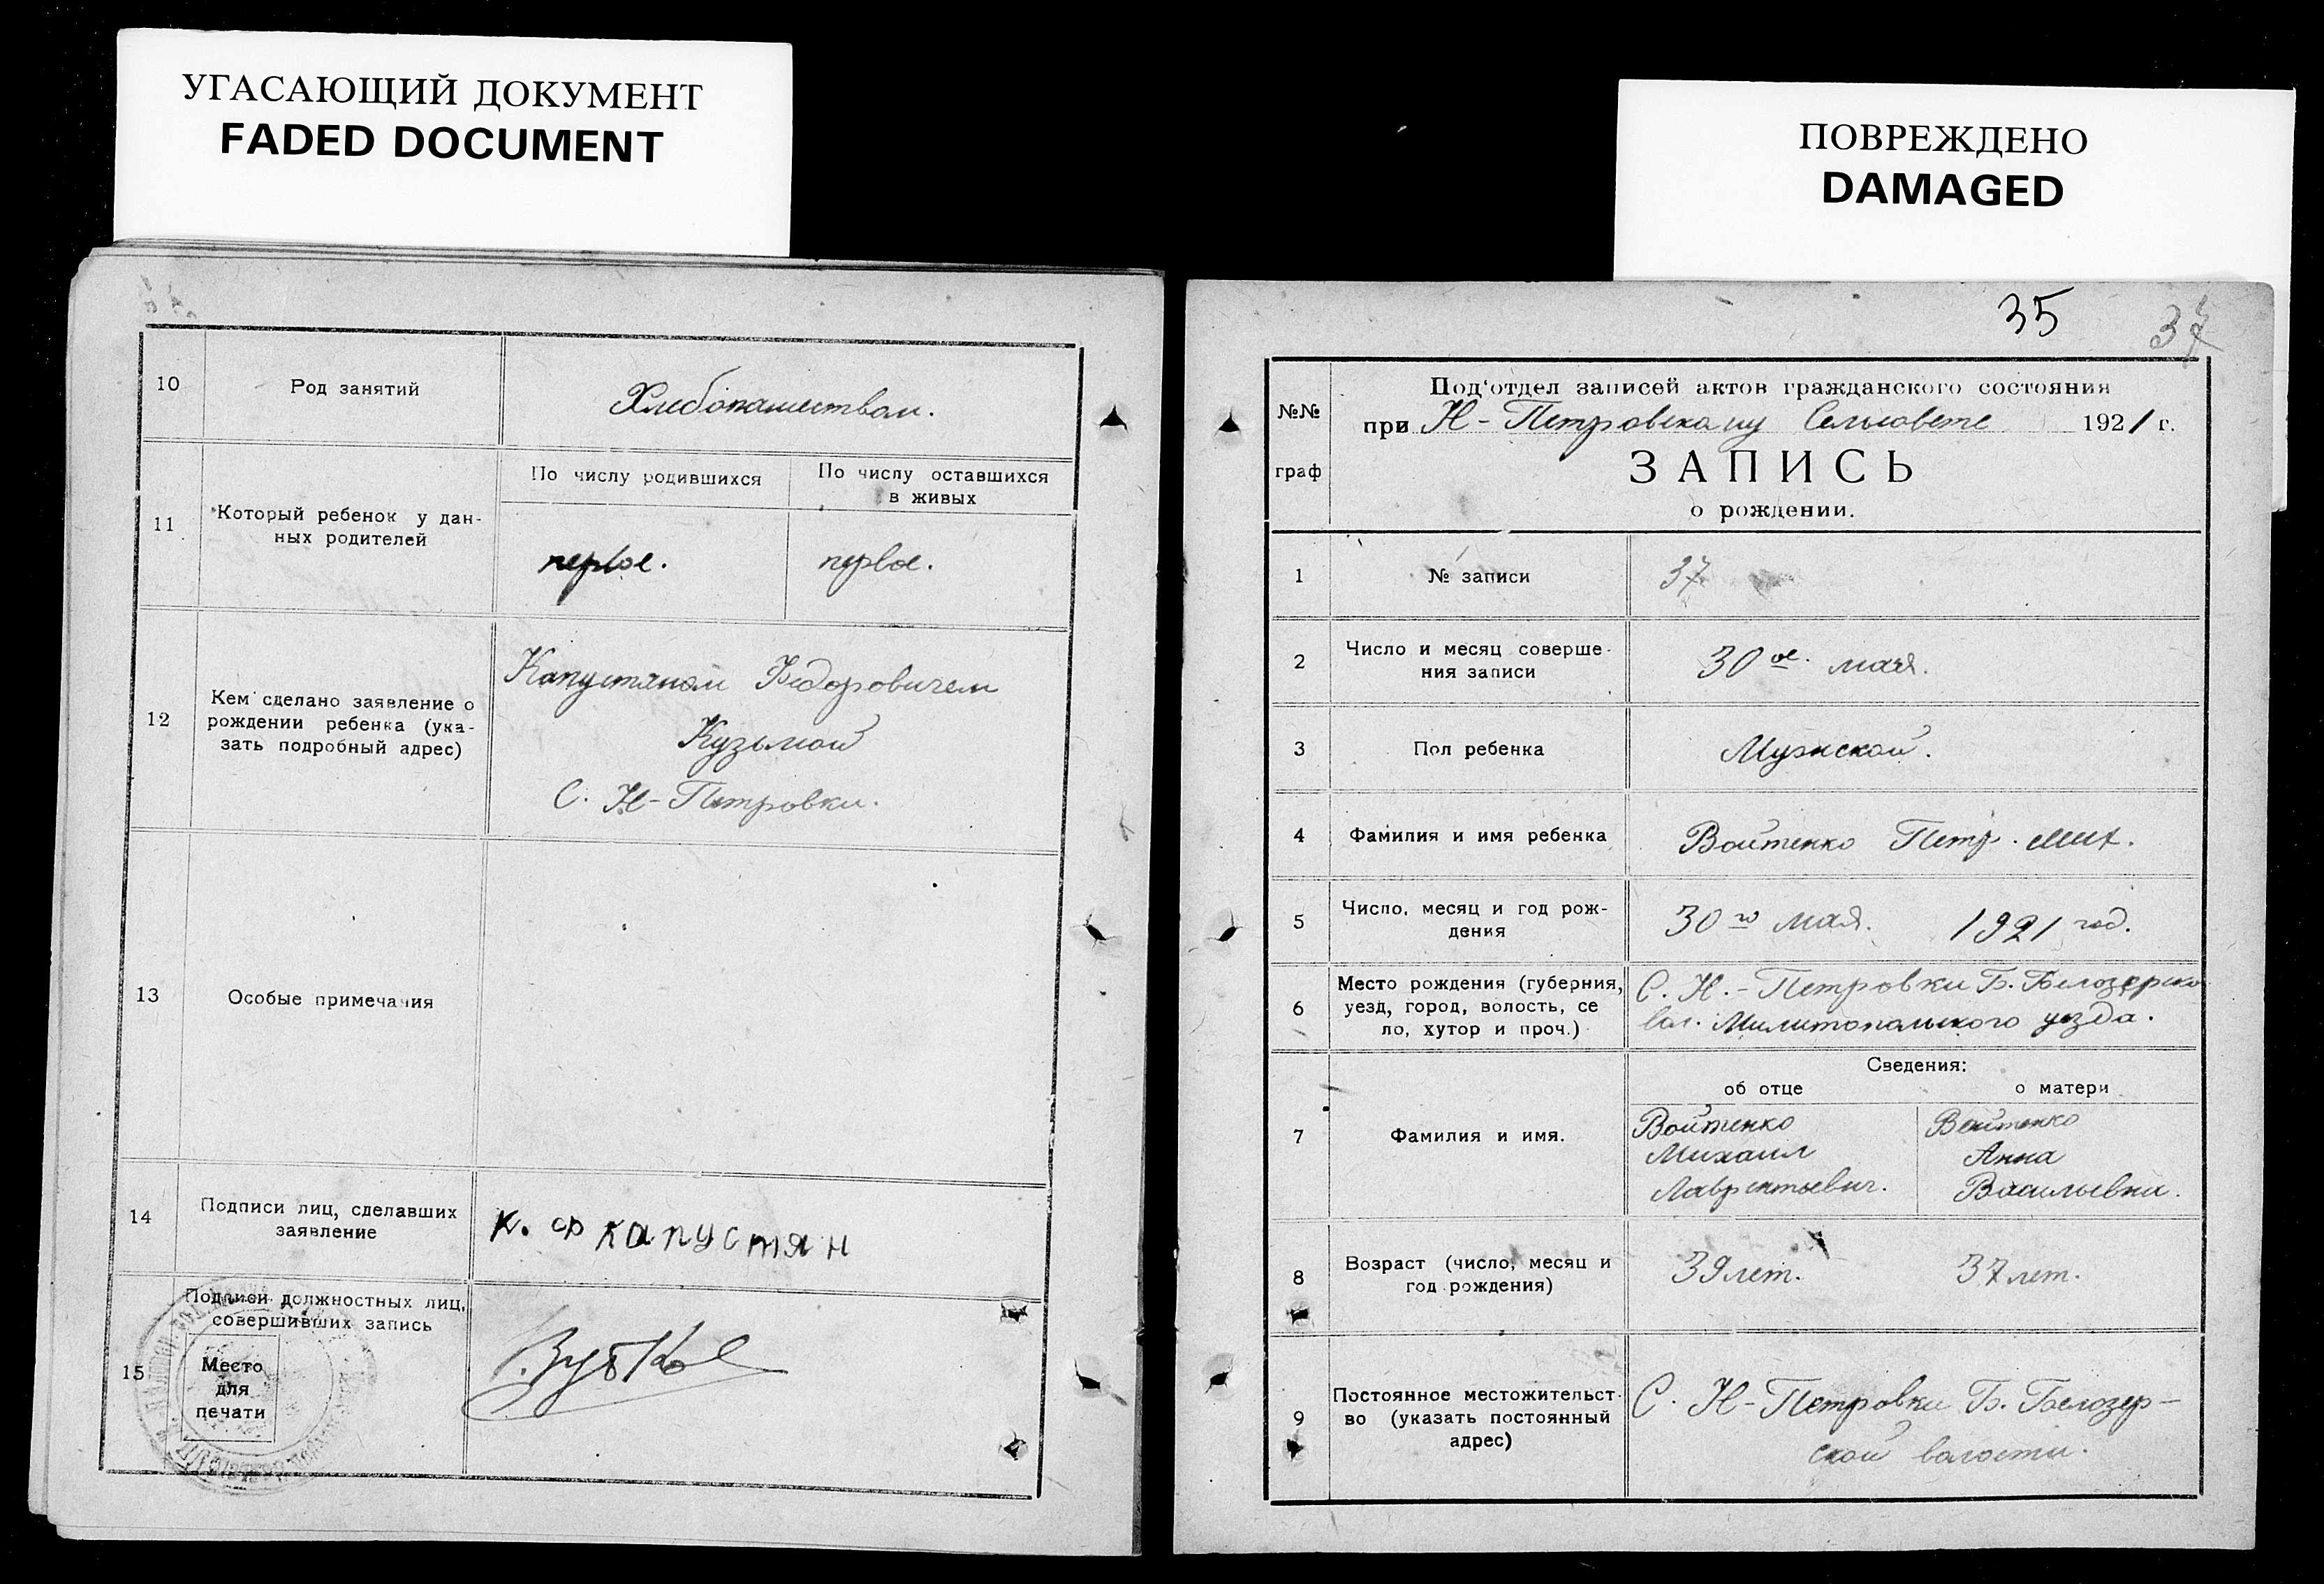 УГАСАЮЩИЙ ДОКУМЕНТ
FADED DOCUMENT
10
Род занятий
Хлебопашеством.
11
Который ребенок у дан-
ных родителей
По числу родившихся
По числу оставшихся
в живых
первое.
первое.
12
Кем сделано заявление о
рождении ребенка (ука-
зать подробный адрес)
Капустяном Федоровичем
Кузьмой
С. Н-Петровки.
13
Особые примечания
14
Подписи лиц, сделавших
заявление
К. Ф Капустян
15
Подписи должностных лиц,
совершивших запись
Место
для
печати
ПОВРЕЖДЕНО
DAMAGED
35
37
№№
граф
Под'отдел записей актов гражданского состояния
при Н-Петровскому Сельсовете 1921 г.
ЗАПИСЬ
о рождении.
1
№ записи
37
2
Число и месяц соверше-
ния записи
30ое. мая.
3
Пол ребенка
Мужской.
4
Фамилия и имя ребенка
Войтенко Петр. Мих.
5
Число, месяц и год рож-
дения
30го мая. 1921 год.
6
Место рождения (губерния,
уезд, город, волость, се
ло, хутор и проч.)
С. Н.-Петровки Б. Белозерско
вол. Милитопольского уезда.
Сведения:
об отце
о матери
7
Фамилия и имя.
Войтенко
Михаил
Лаврентьевич.
Войтенко
Анна
Васильевна.
8
Возраст (число, месяц и
год рождения)
39 лет.
37 лет.
9
Постоянное местожительст-
во (указать постоянный
адрес)
С. Н-Петровки Б. Белозер-
ской волости.